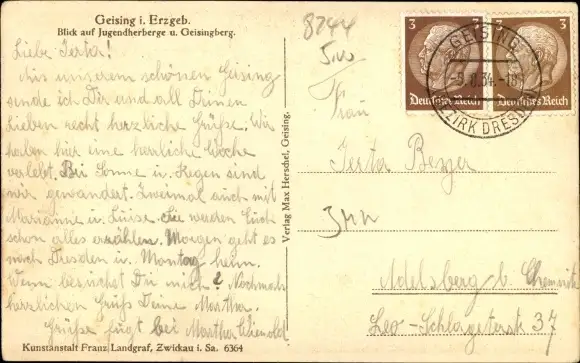 Geising i. Erzgeb.
Blick auf Jugendherberge u. Geisingberg.
Liebe Jerta!
Aus unserem schönen Geising
sende ich Dir und all Deinen
Lieben recht herzliche Grüße. Wir
haben hier eine herrliche Woche
verlebt. Bei Sonne u. Regen sind
wir gewandert. Zweimal auch mit
Marianne u. Luise. Sie werden Euch
schon alles erzählen. Morgen geht es
nach Dresden u. Montag heim.
Wann besuchst Du mich? Nochmals
herzlichen Gruß Deine Martha.
Grüße fügt bei Martha
Kunstanstalt Franz Landgraf, Zwickau i. Sa. 6364
Verlag Max Herschel, Geising.
8244
5,00
3 3
Deutsches Reich Deutsches Reich
GEISING
-5.8.34.-18
BEZIRK DRESDEN
Frau
Jerta Beyer
Adelsberg b. Chemnitz
Leo-Schlageterstr. 37